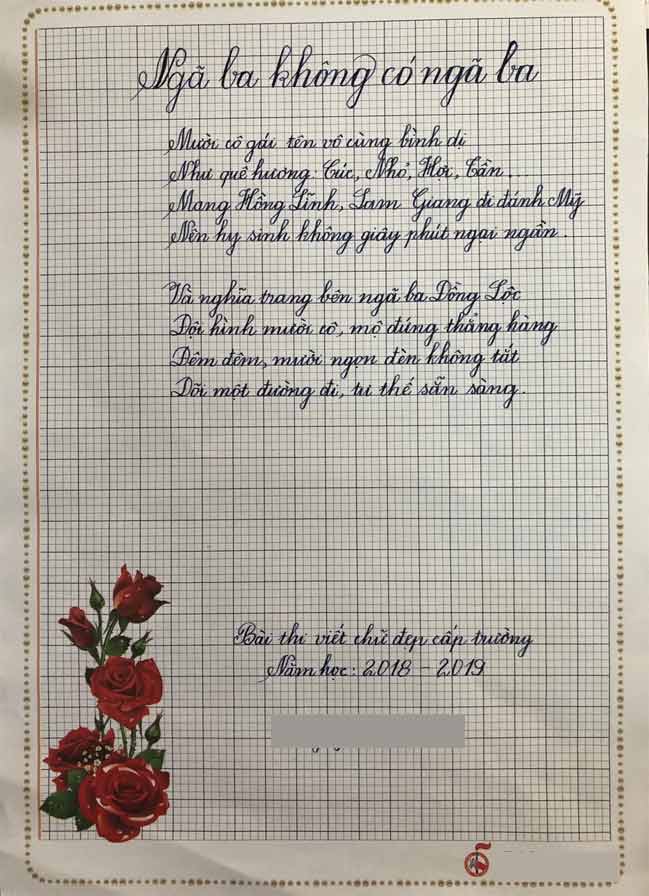 Ngã ba không có ngã ba
Mười cô gái tên vô cùng bình dị
Như quê hương: Cúc, Nhỏ, Hợi, Tần...
Mang Hồng Lĩnh, Lam Giang đi đánh Mỹ
Nên hy sinh không giây phút ngại ngần.
Và nghĩa trang bên ngã ba Đồng Lộc
Đội hình mười cô, mộ đứng thẳng hàng
Đêm đêm, mười ngọn đèn không tắt
Dõi một đường đi, tư thế sẵn sàng.
Bài thi viết chữ đẹp cấp trường
Năm học: 2018 - 2019